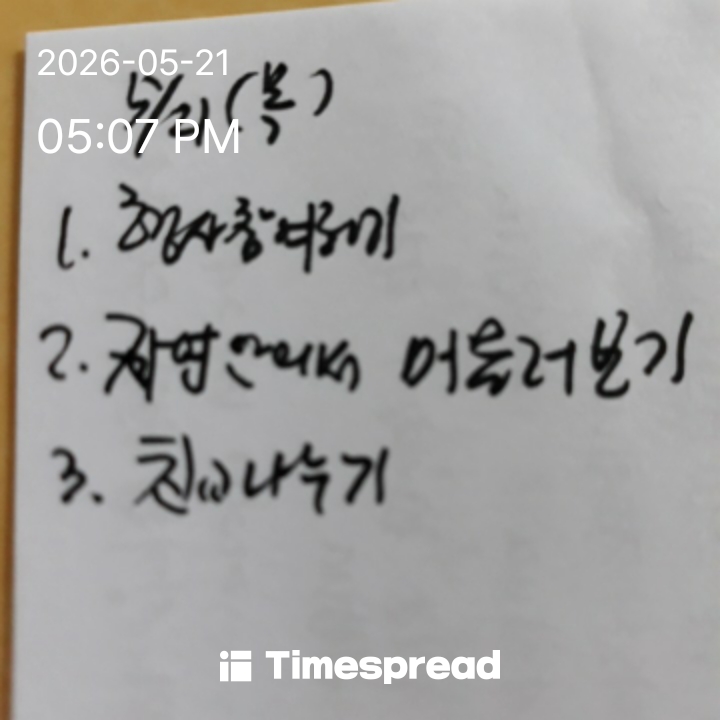 2026-05-21
5/21(목)
05:07 PM
1. 행사참여하기
2. 자연안에서 어울러보기
3. 친교나누기
Timespread